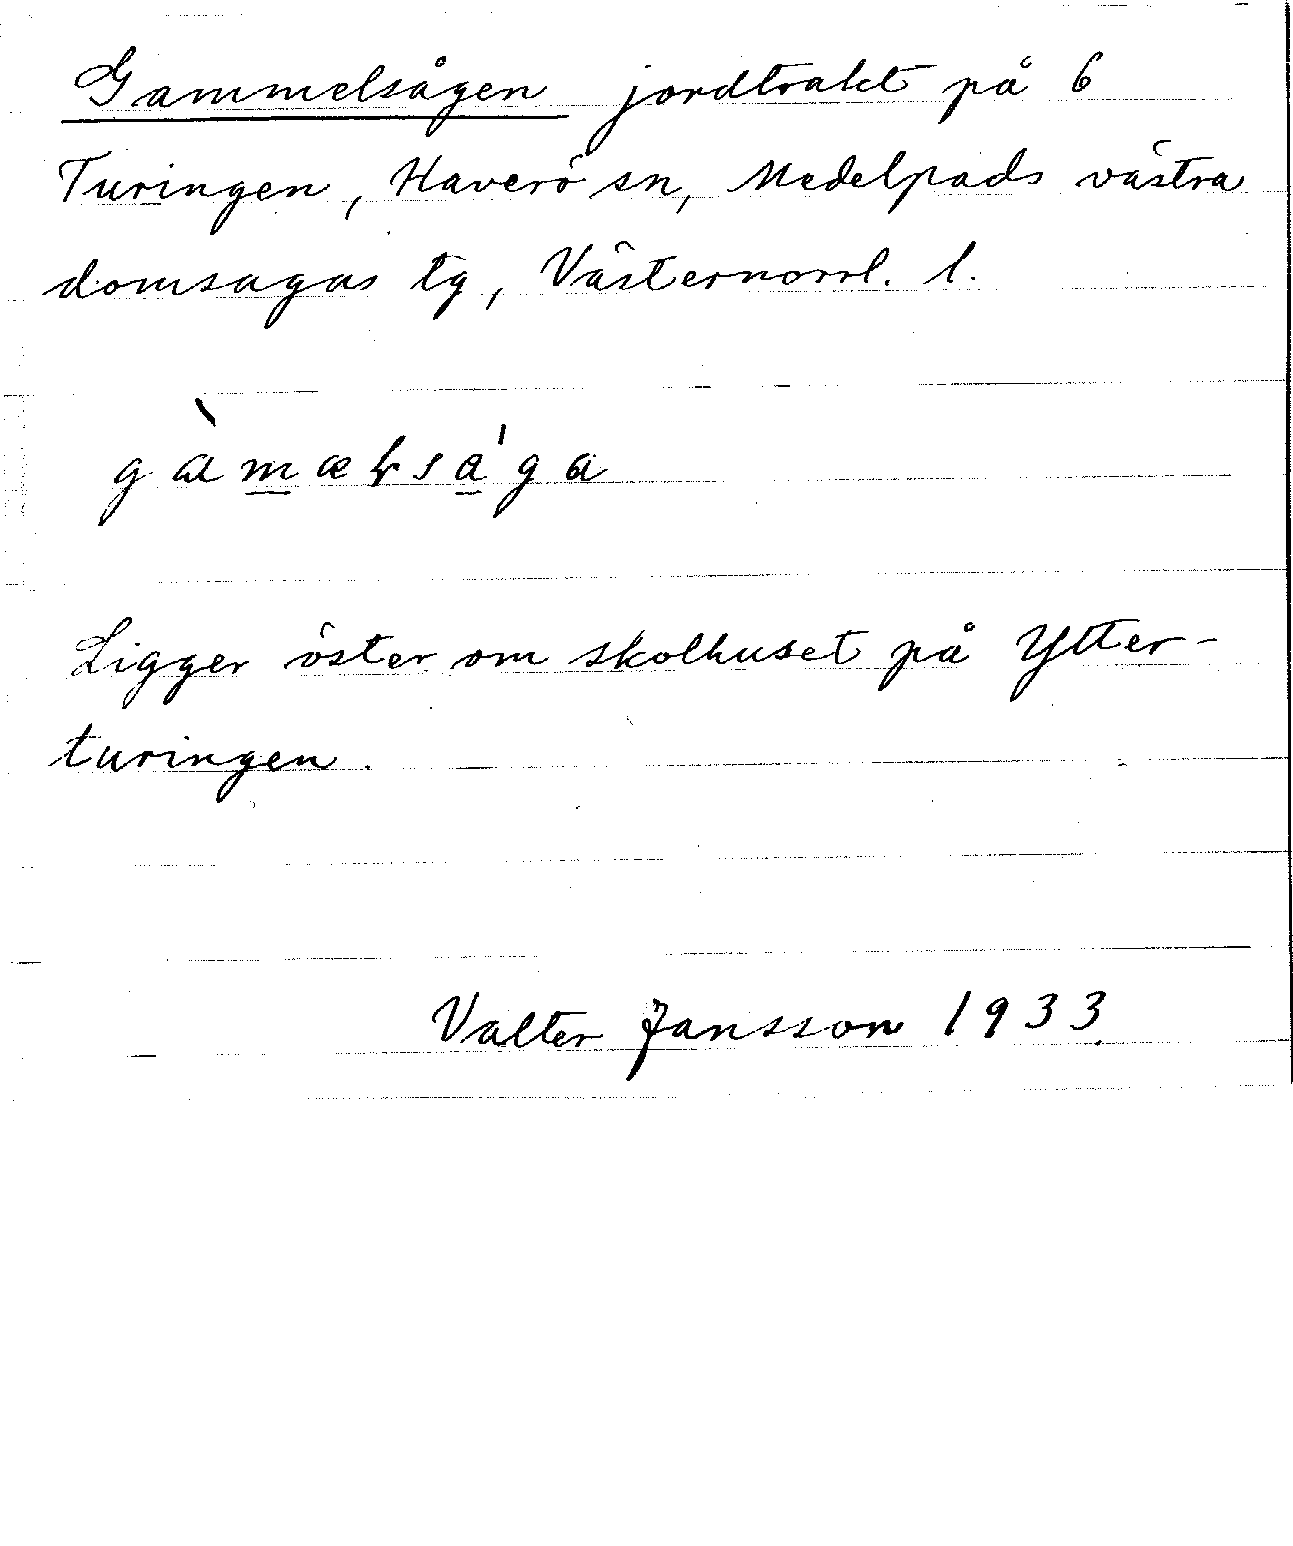 Gammelsågen jordtrakt på 6
Turingen, Haverö sn, Medelpads västra
domsagas tg, Västernorrl. l.
Ligger öster om skolhuset på Ytter-
turingen.
Valter Jansson 1933.